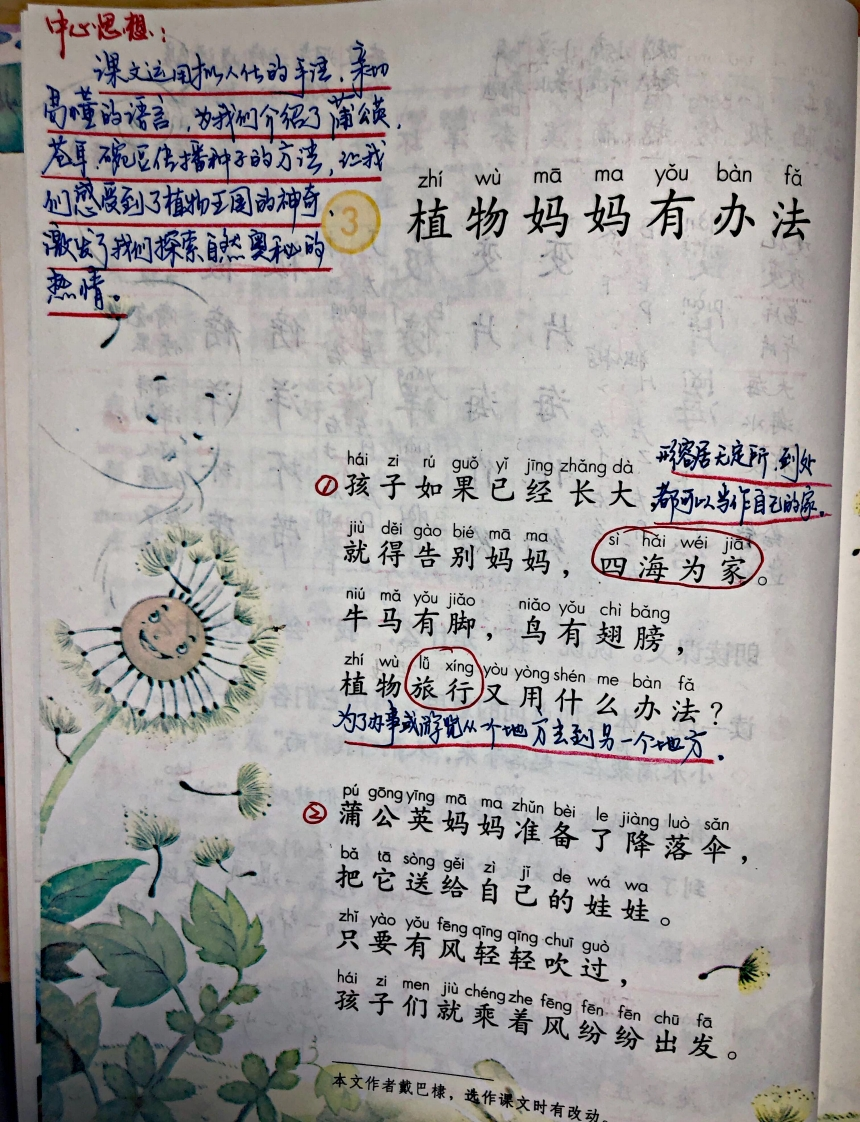 中心思想：
课文运用拟人化的手法，亲切
易懂的语言，为我们介绍了蒲公英，
苍耳，碗豆传播种子的方法，让我
们感受到了植物王国的神奇，
激发了我们探索自然奥秘的
热情。
3
zhí wù mā ma yǒu bàn fǎ
植物妈妈有办法
形容居无定所，到处
都可以当作自己的家。
hái zi rú guǒ yǐ jīng zhǎng dà
①孩子如果已经长大
jiù děi gào bié mā ma sì hǎi wéi jiā
就得告别妈妈，四海为家。
niú mǎ yǒu jiǎo niǎo yǒu chì bǎng
牛马有脚，鸟有翅膀，
zhí wù lǚ xíng yòu yòng shén me bàn fǎ
植物旅行又用什么办法？
为了办事或游览从一个地方去到另一个地方。
pú gōng yīng mā ma zhǔn bèi le jiàng luò sǎn
②蒲公英妈妈准备了降落伞，
bǎ tā sòng gěi zì jǐ de wá wa
把它送给自己的娃娃。
zhǐ yào yǒu fēng qīng qīng chuī guò
只要有风轻轻吹过，
hái zi men jiù chéng zhe fēng fēn fēn chū fā
孩子们就乘着风纷纷出发。
本文作者戴巴棣，选作课文时有改动。